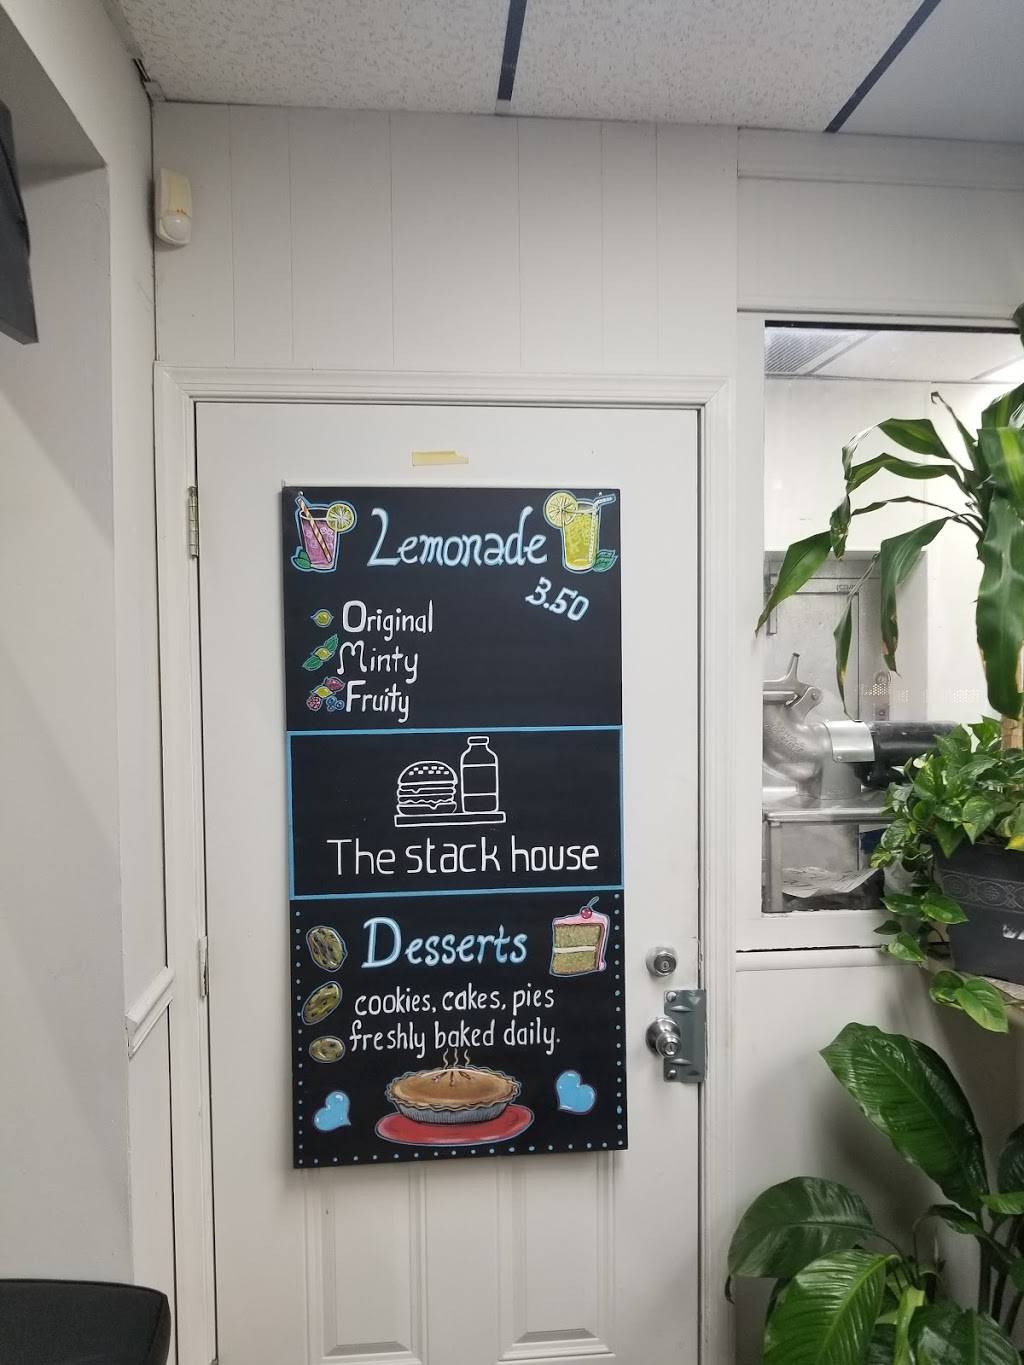 Lemonade
3.50
Original
Minty
Fruity
The stack house
Desserts
cookies, cakes, pies
freshly baked daily.